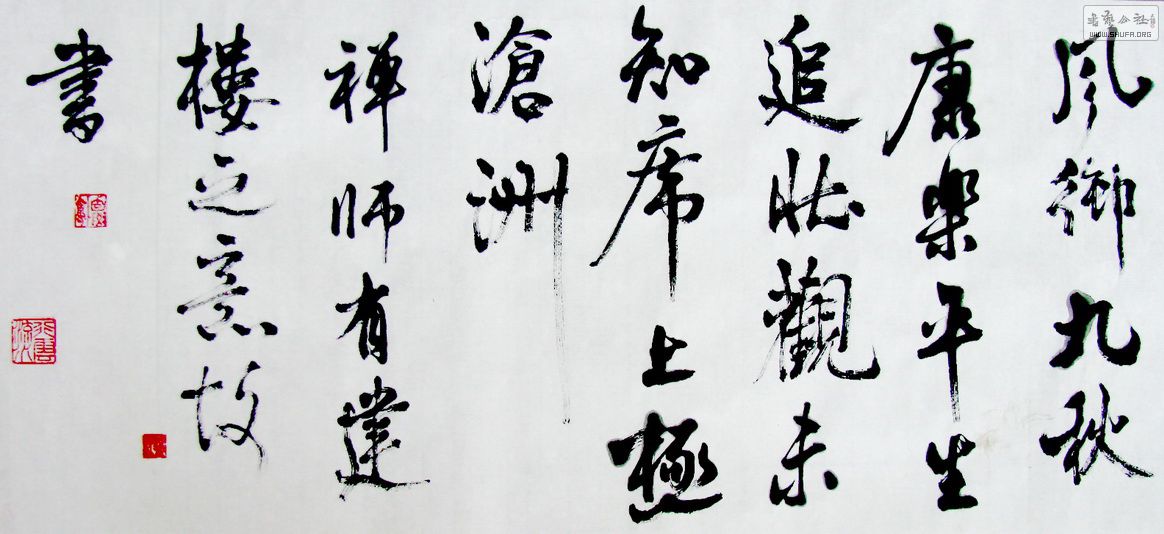 风御九秋
康樂平生
追壯觀未
知席上極
滄洲
禅師有建
樓之意故
書
書藝公社
WWW.SHUFA.ORG